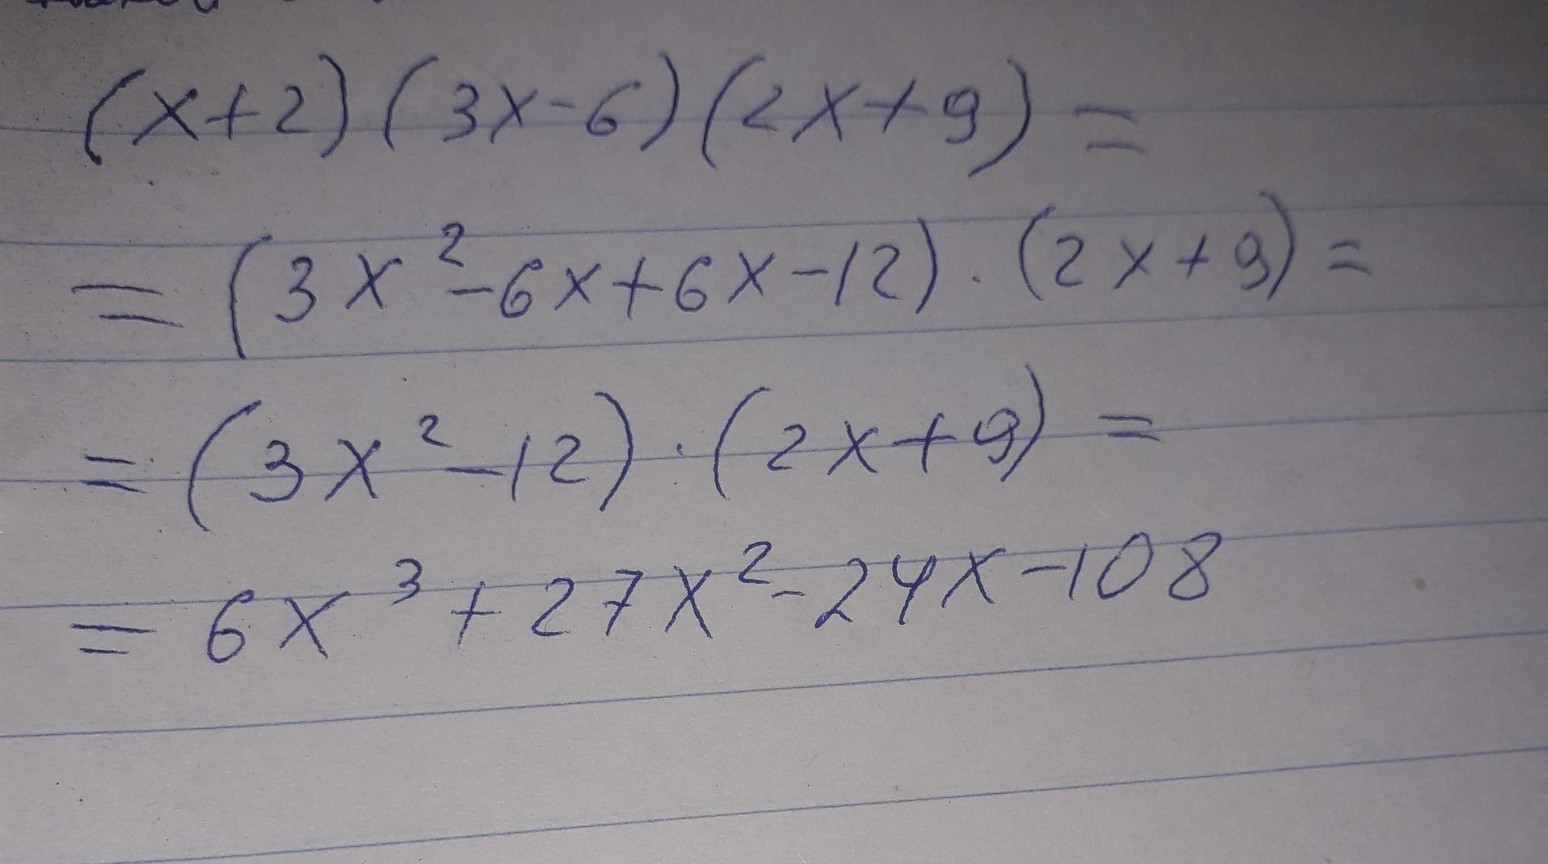 (x+2)(3x-6)(2x+9)=
=(3x²-6x+6x-12)·(2x+9)=
=(3x²-12)·(2x+9)=
=6x³+27x²-24x-108